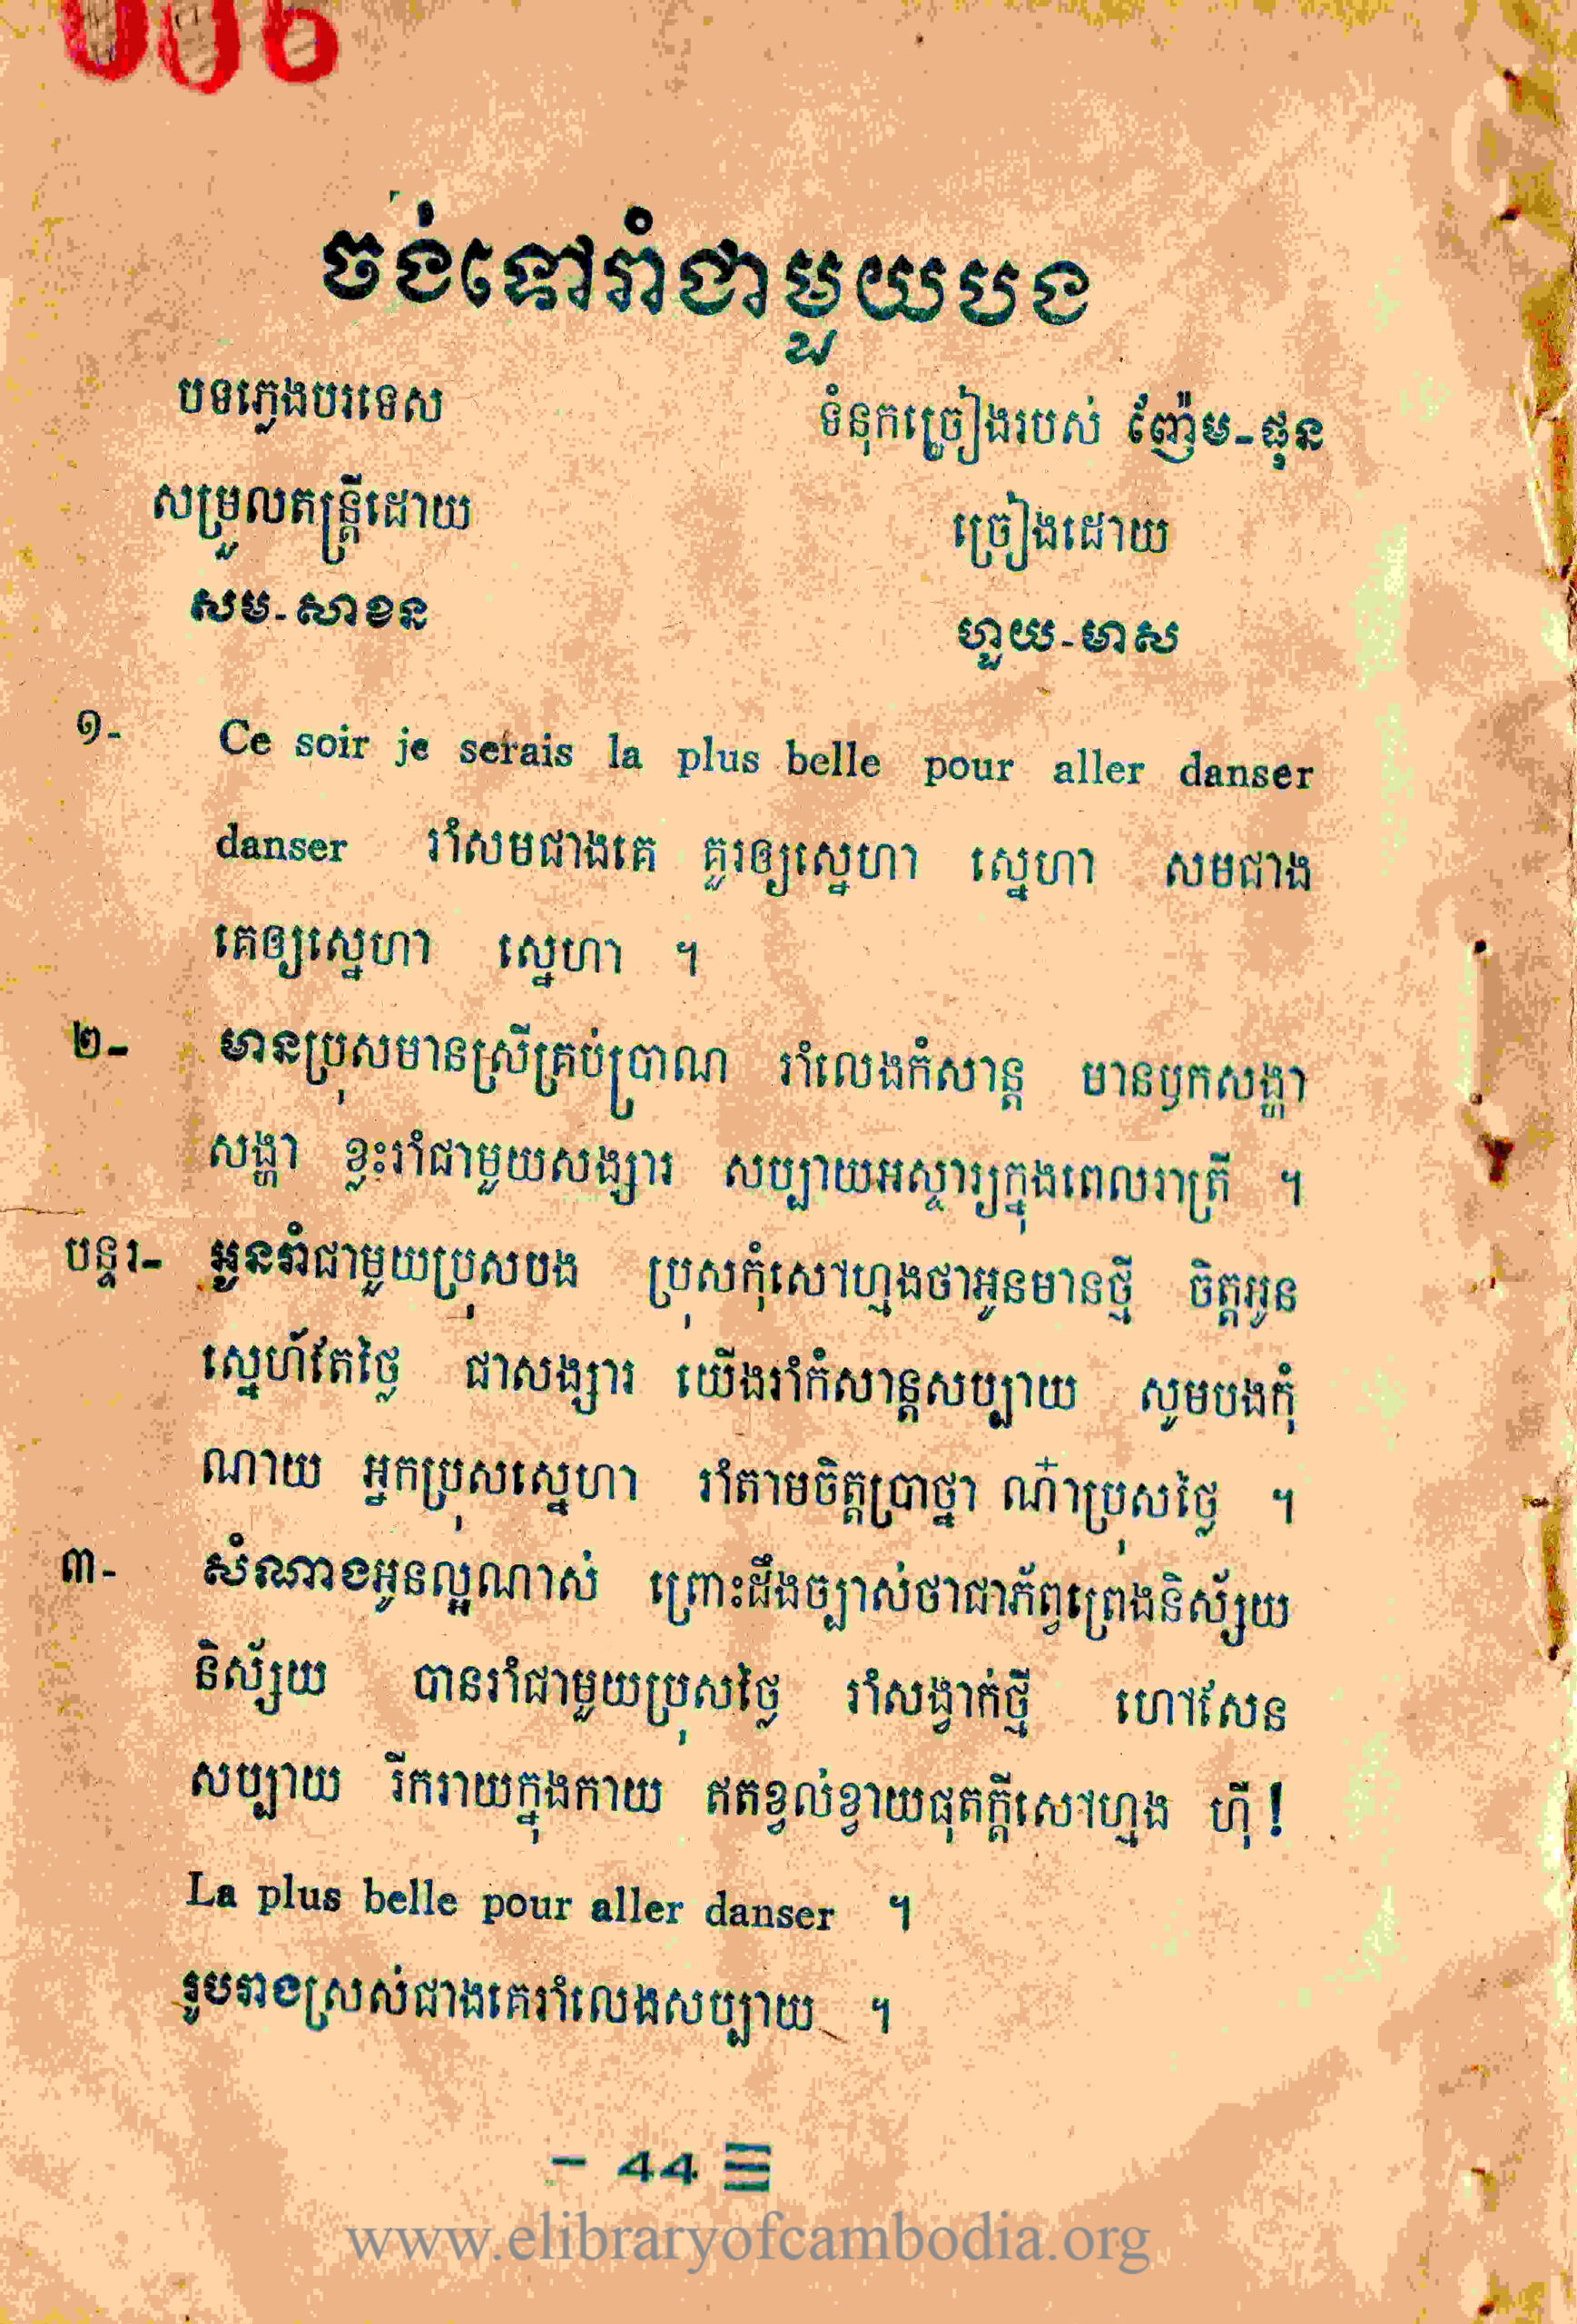 006
ចង់ទៅរាំជាមួយបង
បទភ្លេងបរទេស ទំនុកច្រៀងរបស់ ញ៉ែម-ផុន
សម្រួលតន្ត្រីដោយ ច្រៀងដោយ
សម-សាខន ហួយ-មាស
១- Ce soir je serais la plus belle pour aller danser
danser រាំសមជាងគេ គួរឲ្យស្នេហា ស្នេហា សមជាង
គេឲ្យស្នេហា ស្នេហា ។
២- មានប្រុសមានស្រីគ្រប់ប្រាណ រាំលេងកំសាន្ត មានឫកសង្ហា
សង្ហា ខ្លះរាំជាមួយសង្សារ សប្បាយអស្ចារ្យក្នុងពេលរាត្រី ។
បន្ទរ- អូនរាំជាមួយប្រុសបង ប្រុសកុំសៅហ្មងថាអូនមានថ្មី ចិត្តអូន
ស្នេហ៍តែថ្លៃ ជាសង្សារ យើងរាំកំសាន្តសប្បាយ សូមបងកុំ
ណាយ អ្នកប្រុសស្នេហា រាំតាមចិត្តប្រាថ្នា ណ៎ាប្រុសថ្លៃ ។
៣- សំណាងអូនល្អណាស់ ព្រោះដឹងច្បាស់ថាជាភ័ព្វព្រេងនិស្ស័យ
និស្ស័យ បានរាំជាមួយប្រុសថ្លៃ រាំសង្វាក់ថ្មី ហៅសែន
សប្បាយ រីករាយក្នុងកាយ ឥតខ្វល់ខ្វាយផុតក្ដីសៅហ្មង ហ៊ី !
La plus belle pour aller danser ។
រូបរាងស្រស់ជាងគេរាំលេងសប្បាយ ។
- 44 ☰
www.elibraryofcambodia.org